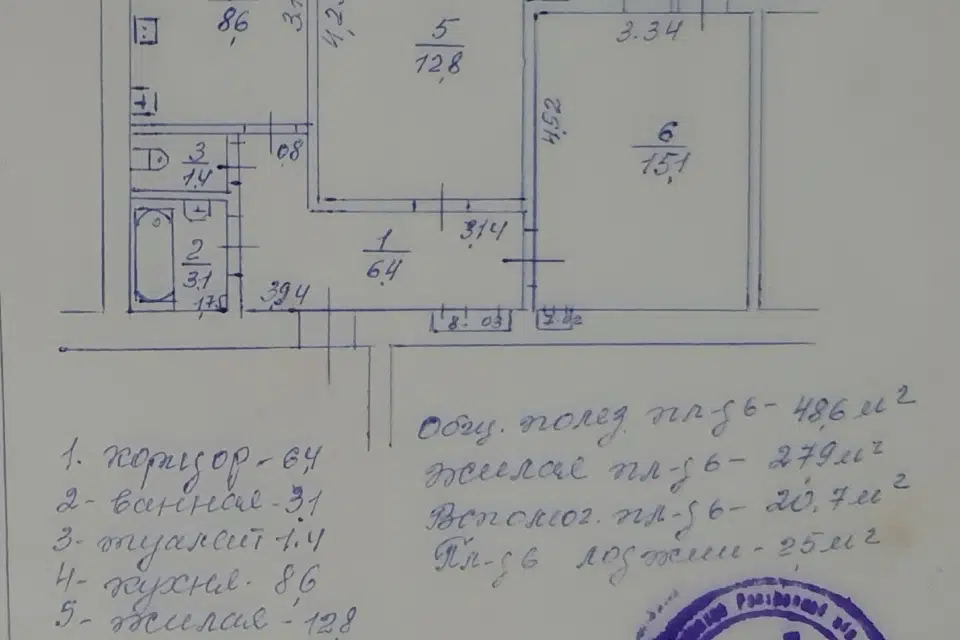 8,6
3.1
4,2
5
12,8
3.34
4,52
6
15,1
0,8
3
1.4
3,14
1
6,4
2
3,1
1,75
3,94
8 03
Общ. полез. пл-дь - 48,6 м²
жилая пл-дь - 27,9 м²
Вспомог. пл-дь - 20,7 м²
Пл-дь лоджии - 2,5 м²
1. коридор - 6,4
2 - ванная - 3,1
3 - туалет 1.4
4 - кухня - 8,6
5 - жилая - 12,8